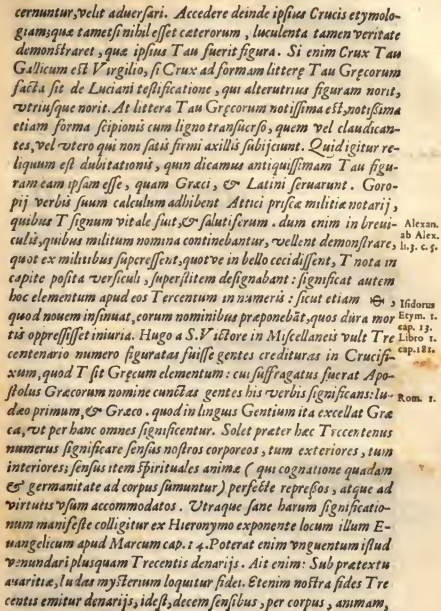 cernuntur, velit aduersari. Accedere deinde ipsius Crucis etymolo-
giam; quæ tametsi nihil esset cæterorum, luculenta tamen veritate
demonstraret, quæ ipsius Tau fuerit figura. Si enim Crux Tau
Gallicum est Virgilio, si Crux ad formam litterę Tau Gręcorum
facta sit de Luciani testificatione, qui alterutrius figuram norit,
vtriusque norit. At littera Tau Gręcorum notissima est, notißima
etiam forma scipionis cum ligno transuerso, quem vel claudican-
tes, vel vtero qui non satis firmi axillis subijciunt. Quid igitur re-
liquum est dubitationis, quin dicamus antiquissimam Tau figu-
ram eam ipsam esse, quam Græci, & Latini seruarunt. Goro-
pij verbis suum calculum adhibent Attici priscæ militiæ notarij,
quibus T signum vitale fuit, & salutiferum. dum enim in breui-
culis, quibus militum nomina continebantur, vellent demonstrare,
quot ex militibus superessent, quotve in bello cecidissent, T nota in
capite posita versiculi, superstitem designabant: significat autem
hoc elementum apud eos Tercentum in numeris: sicut etiam Θ,
quod nouem insinuat, eorum nominibus præponebāt, quos dura mor
tis oppressisset iniuria. Hugo a S. Victore in Miscellaneis vult Tre
centenario numero figuratas fuisse gentes credituras in Crucifi-
xum, quod T sit Gręcum elementum: cui suffragatus fuerat Apo-
stolus Græcorum nomine cunctas gentes his verbis significans: Iu-
dæo primum, & Græco. quod in linguis Gentium ita excellat Græ
ca, vt per hanc omnes significentur. Solet præter hæc Trecentenus
numerus significare sensus nostros corporeos, tum exteriores, tum
interiores; sensus item spirituales animæ (qui cognatione quadam
& germanitate ad corpus sumuntur) perfecte repreßos, atque ad
virtutis vsum accommodatos. Vtraque sane harum significatio-
num manifeste colligitur ex Hieronymo exponente locum illum E-
uangelicum apud Marcum cap. 14. Poterat enim vnguentum istud
venundari plusquam Trecentis denarijs. Ait enim: Sub prætextu
auaritiæ, Iudas mysterium loquitur fidei. Etenim nostra fides Tre
centis emitur denarijs, idest, decem sensibus, per corpus, animam,
Alexan.
ab Alex.
li.3. c.5.
Isidorus
Etym. 1.
cap. 23.
Libro 1.
cap. 181.
Rom. 1.